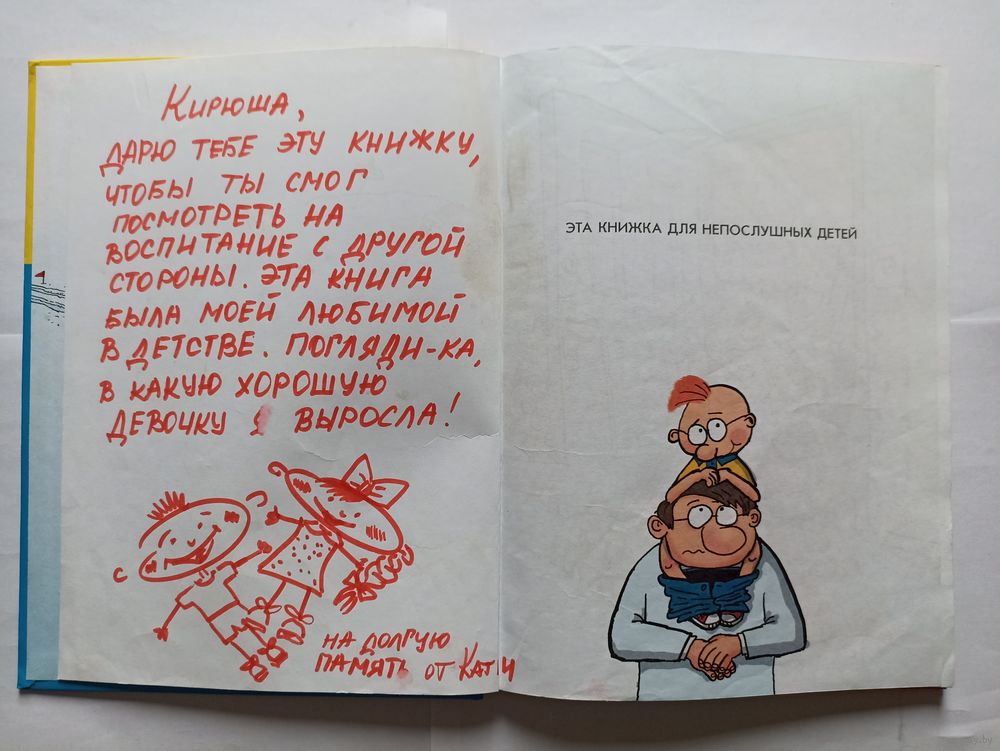 Кирюша,
ДАРЮ ТЕБЕ ЭТУ КНИЖКУ,
ЧТОБЫ ТЫ СМОГ
ПОСМОТРЕТЬ НА
ВОСПИТАНИЕ С ДРУГОЙ
СТОРОНЫ. ЭТА КНИГА
БЫЛА МОЕЙ ЛЮБИМОЙ
В ДЕТСТВЕ. ПОГЛЯДИ-КА,
В КАКУЮ ХОРОШУЮ
ДЕВОЧКУ Я ВЫРОСЛА!
НА ДОЛГУЮ
ПАМЯТЬ ОТ КАТИ
ЭТА КНИЖКА ДЛЯ НЕПОСЛУШНЫХ ДЕТЕЙ